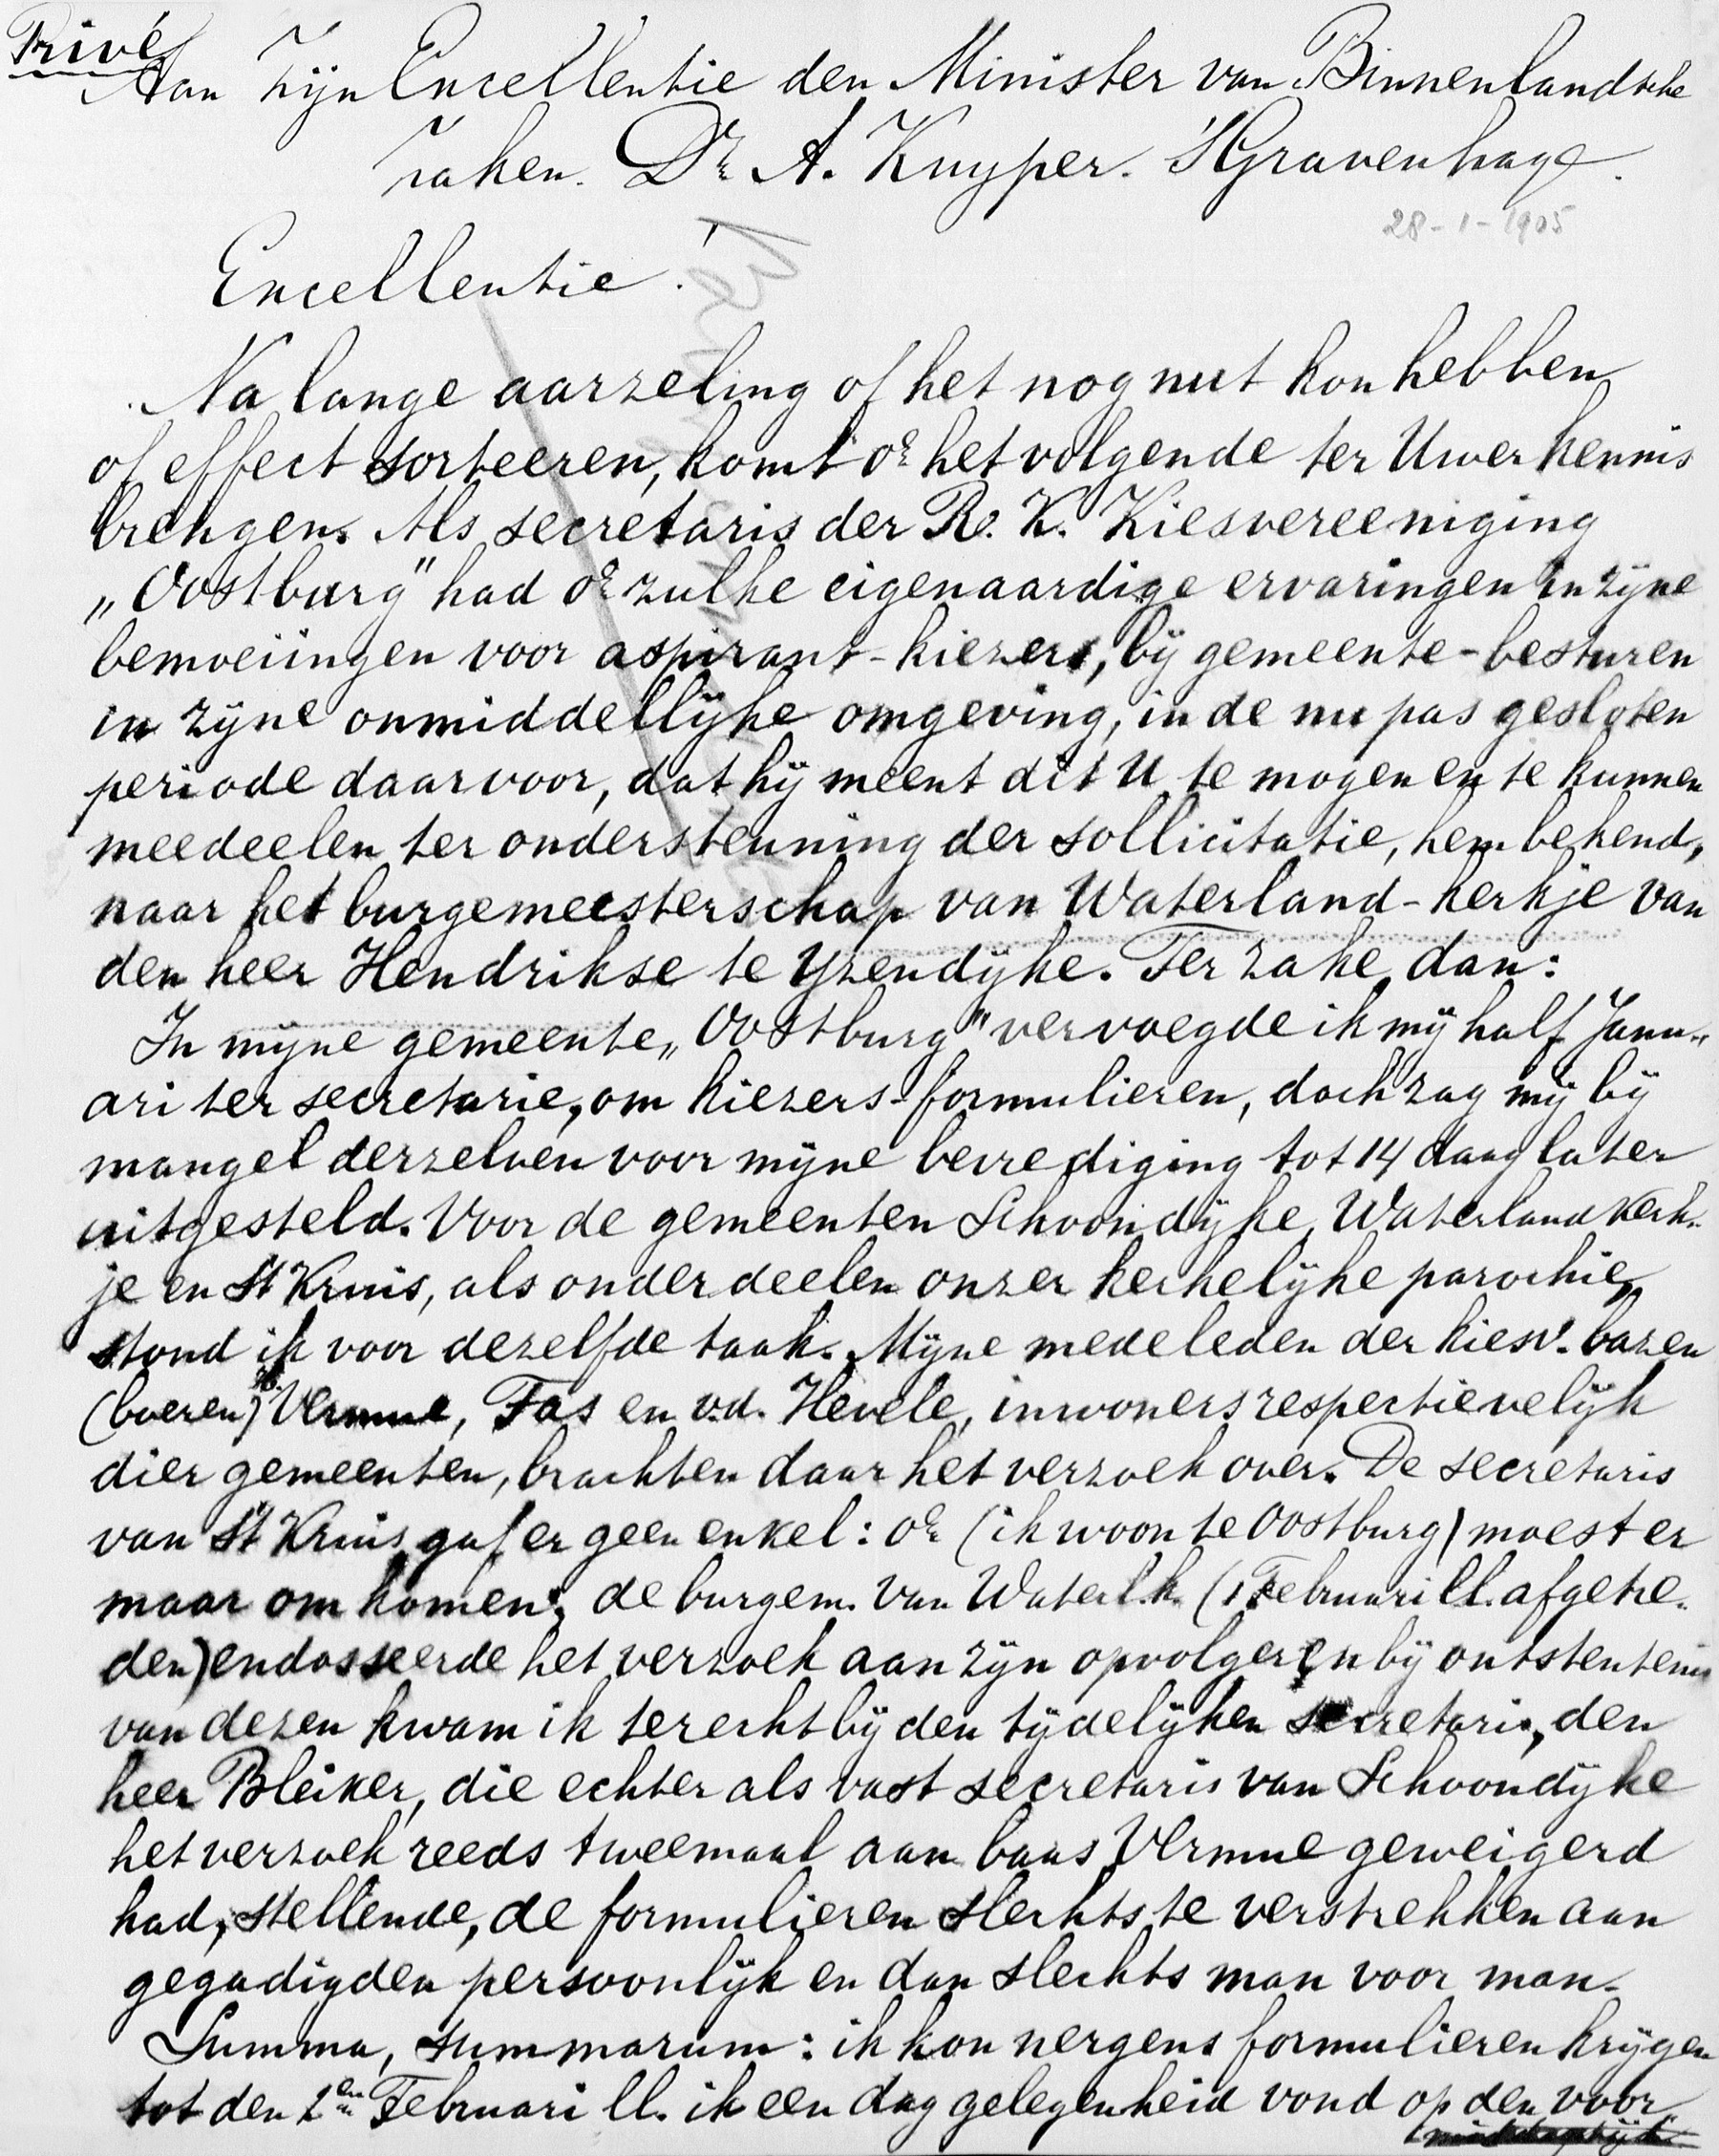 Privé
Aan Zijn Excellentie den Minister van Binnenlandsche
zaken. Dr A. Kuyper. 'sGravenhage.
28-1-1905
Excellentie!
Na lange aarzeling of het nog nut kon hebben
of effect sorteeren, komt o२ het volgende ter Uwer kennis
brengen. Als secretaris der R. K. Kiesvereeniging
„Oostburg" had o२ zulke eigenaardige ervaringen in zijne
bemoeiingen voor aspirant-kiezers, bij gemeente-besturen
in zijne onmiddellijke omgeving, in de nu pas gesloten
periode daarvoor, dat hij meent dit U te mogen en te kunnen
meedeelen ter ondersteuning der sollicitatie, hem bekend,
naar het burgemeesterschap van Waterland-kerkje van
den heer Hendrikse te Yzendijke. Ter zake dan:
In mijne gemeente „Oostburg" vervoegde ik mij half Janu-
ari ter secretarie, om kiezers-formulieren, doch zag mij bij
mangel derzelven voor mijne bevrediging tot 14 daag later
uitgesteld. Voor de gemeenten Schoondijke, Waterlandkerk-
je en St Kruis, als onderdeelen onzer kerkelijke parochie,
stond ik voor dezelfde taak. Mijne medeleden der kiesv. bazen
(boeren) Vermue, Fas en v.d. Hevele, inwoners respectievelijk
dier gemeenten, brachten daar het verzoek over. De secretaris
van St Kruis gaf er geen enkel: o२ (ik woon te Oostburg) moest er
maar om komen; de burgem. van Waterl.k. (1 Februari ll. afgetre-
den) endosseerde het verzoek aan zijn opvolger en bij ontstentenis
van dezen kwam ik terecht bij den tijdelijken secretaris, den
heer Bleiker, die echter als vast secretaris van Schoondijke
het verzoek reeds tweemaal aan baas Vermue geweigerd
had, stellende, de formulieren slechts te verstrekken aan
gegadigden persoonlijk en dan slechts man voor man.
Summa, summarum: ik kon nergens formulieren krijgen
tot den 2en Februari ll. ik een dag gelegenheid vond op den voor